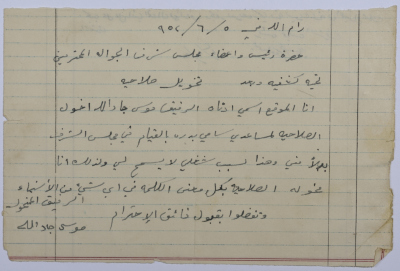 رام الله في ٥ / ٦ / ٩٥٢
حضرة رئيس واعضاء مجلس شرف الجوالة المحترمين
تحية كشفيه وبعد تخويل صلاحيه
انا الموقع اسمي ادناه الرفيق موسى جادالله اخول
الصلاحية لمساعدي سامي بدر بالقيام في مجلس الشرف
بدلاً مني وهذا لسبب شغلي لا يسمح لي ولذلك انا
مخوله الصلاحية بكل معنى الكلمة في اي شيء من الأشياء
وتفضلوا بقبول فائق الإحترام
الرفيق المخول
موسى جاد الله